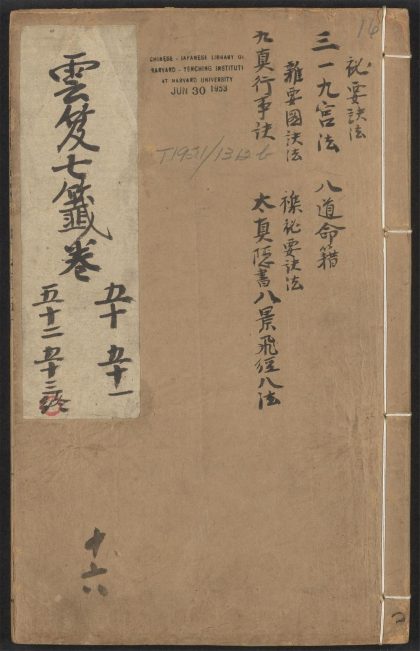 祕要訣法
三一九宮法 八道命籍
雜要圖訣法 襍祕要訣法
九真行事訣 太真隱書八景飛經八法
CHINESE - JAPANESE LIBRARY OF
HARVARD - YENCHING INSTITUTE
AT HARVARD UNIVERSITY
JUN 30 1953
雲笈七籖卷
五十 五十一
五十二 五十三終
十六
16